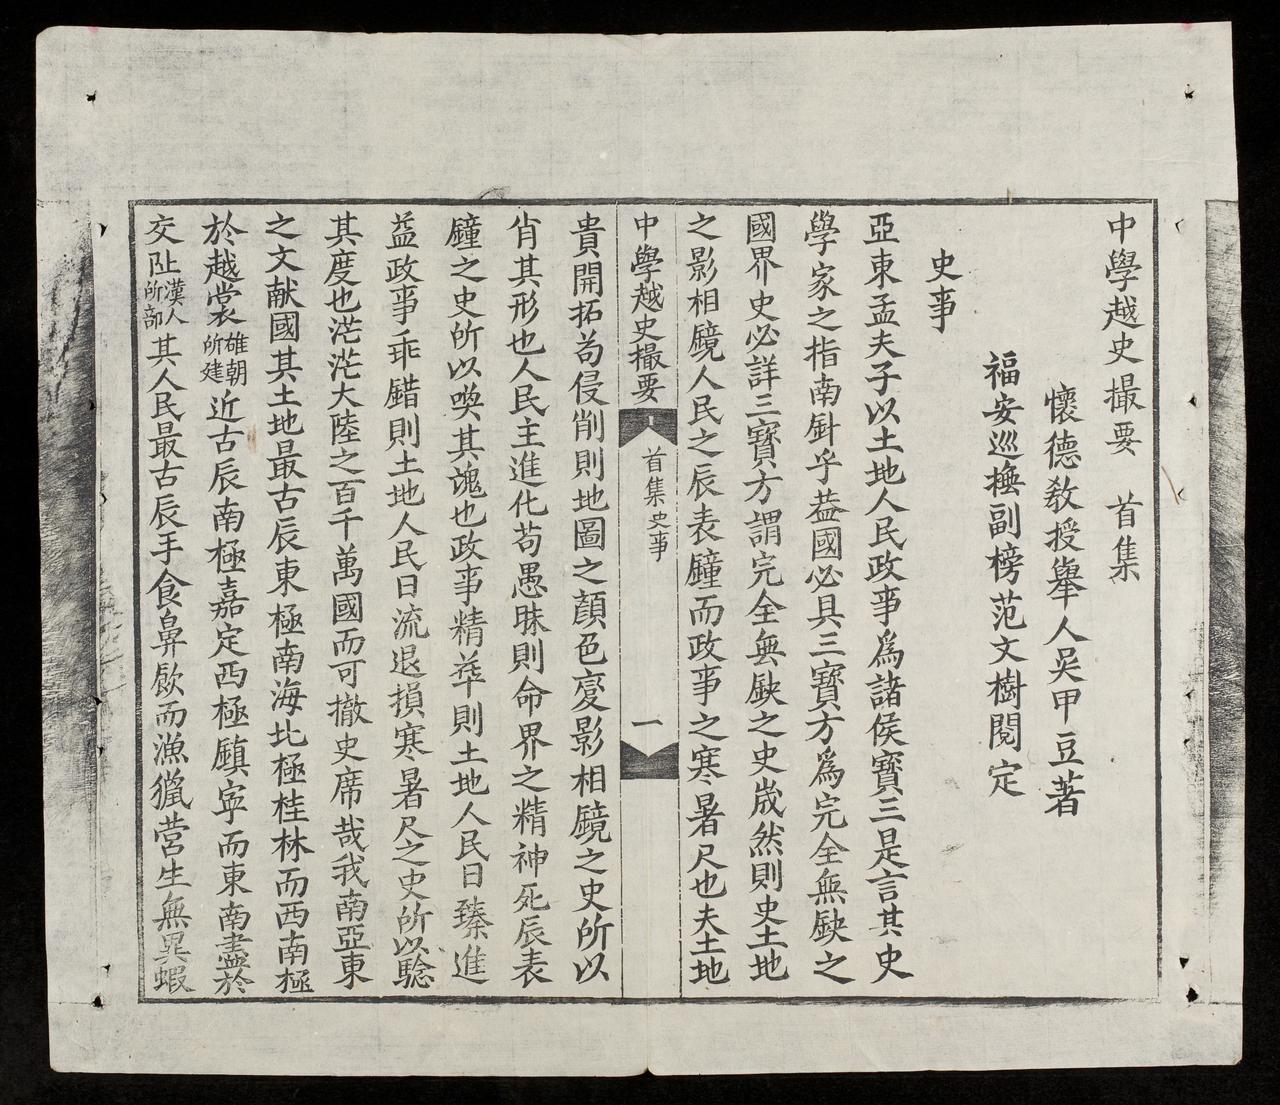 中學越史撮要　首集
懷德教授舉人吳甲豆著
福安巡撫副榜范文樹閱定
史事
亞東孟夫子以土地人民政事為諸侯寳三是言其史
學家之指南針乎葢國必具三寳方為完全無缺之
國界史必詳三寳方謂完全無缺之史峩然則史土地
之影相鏡人民之辰表鐘而政事之寒暑尺也夫土地
中學越史撮要
首集史事
一
貴開拓苟侵削則地圖之顏色變影相鏡之史所以
肖其形也人民主進化苟愚昧則命界之精神死辰表
鐘之史所以喚其魂也政事精萃則土地人民日臻進
益政事乖錯則土地人民日流退損寒暑尺之史所以騐
其度也茫茫大陸之百千萬國而可撤史席哉我南亞東
之文献國其土地最古辰東極南海北極桂林而西南極
於越裳雄朝所建近古辰南極嘉定西極鎮寧而東南盡於
交阯漢人所部其人民最古辰手食鼻飲而漁獵營生無異蝦